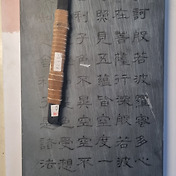 訶般若波羅蜜多心
在菩薩行深般若波
照見五蘊皆空度一
利子色不異空空不
受想
諸法